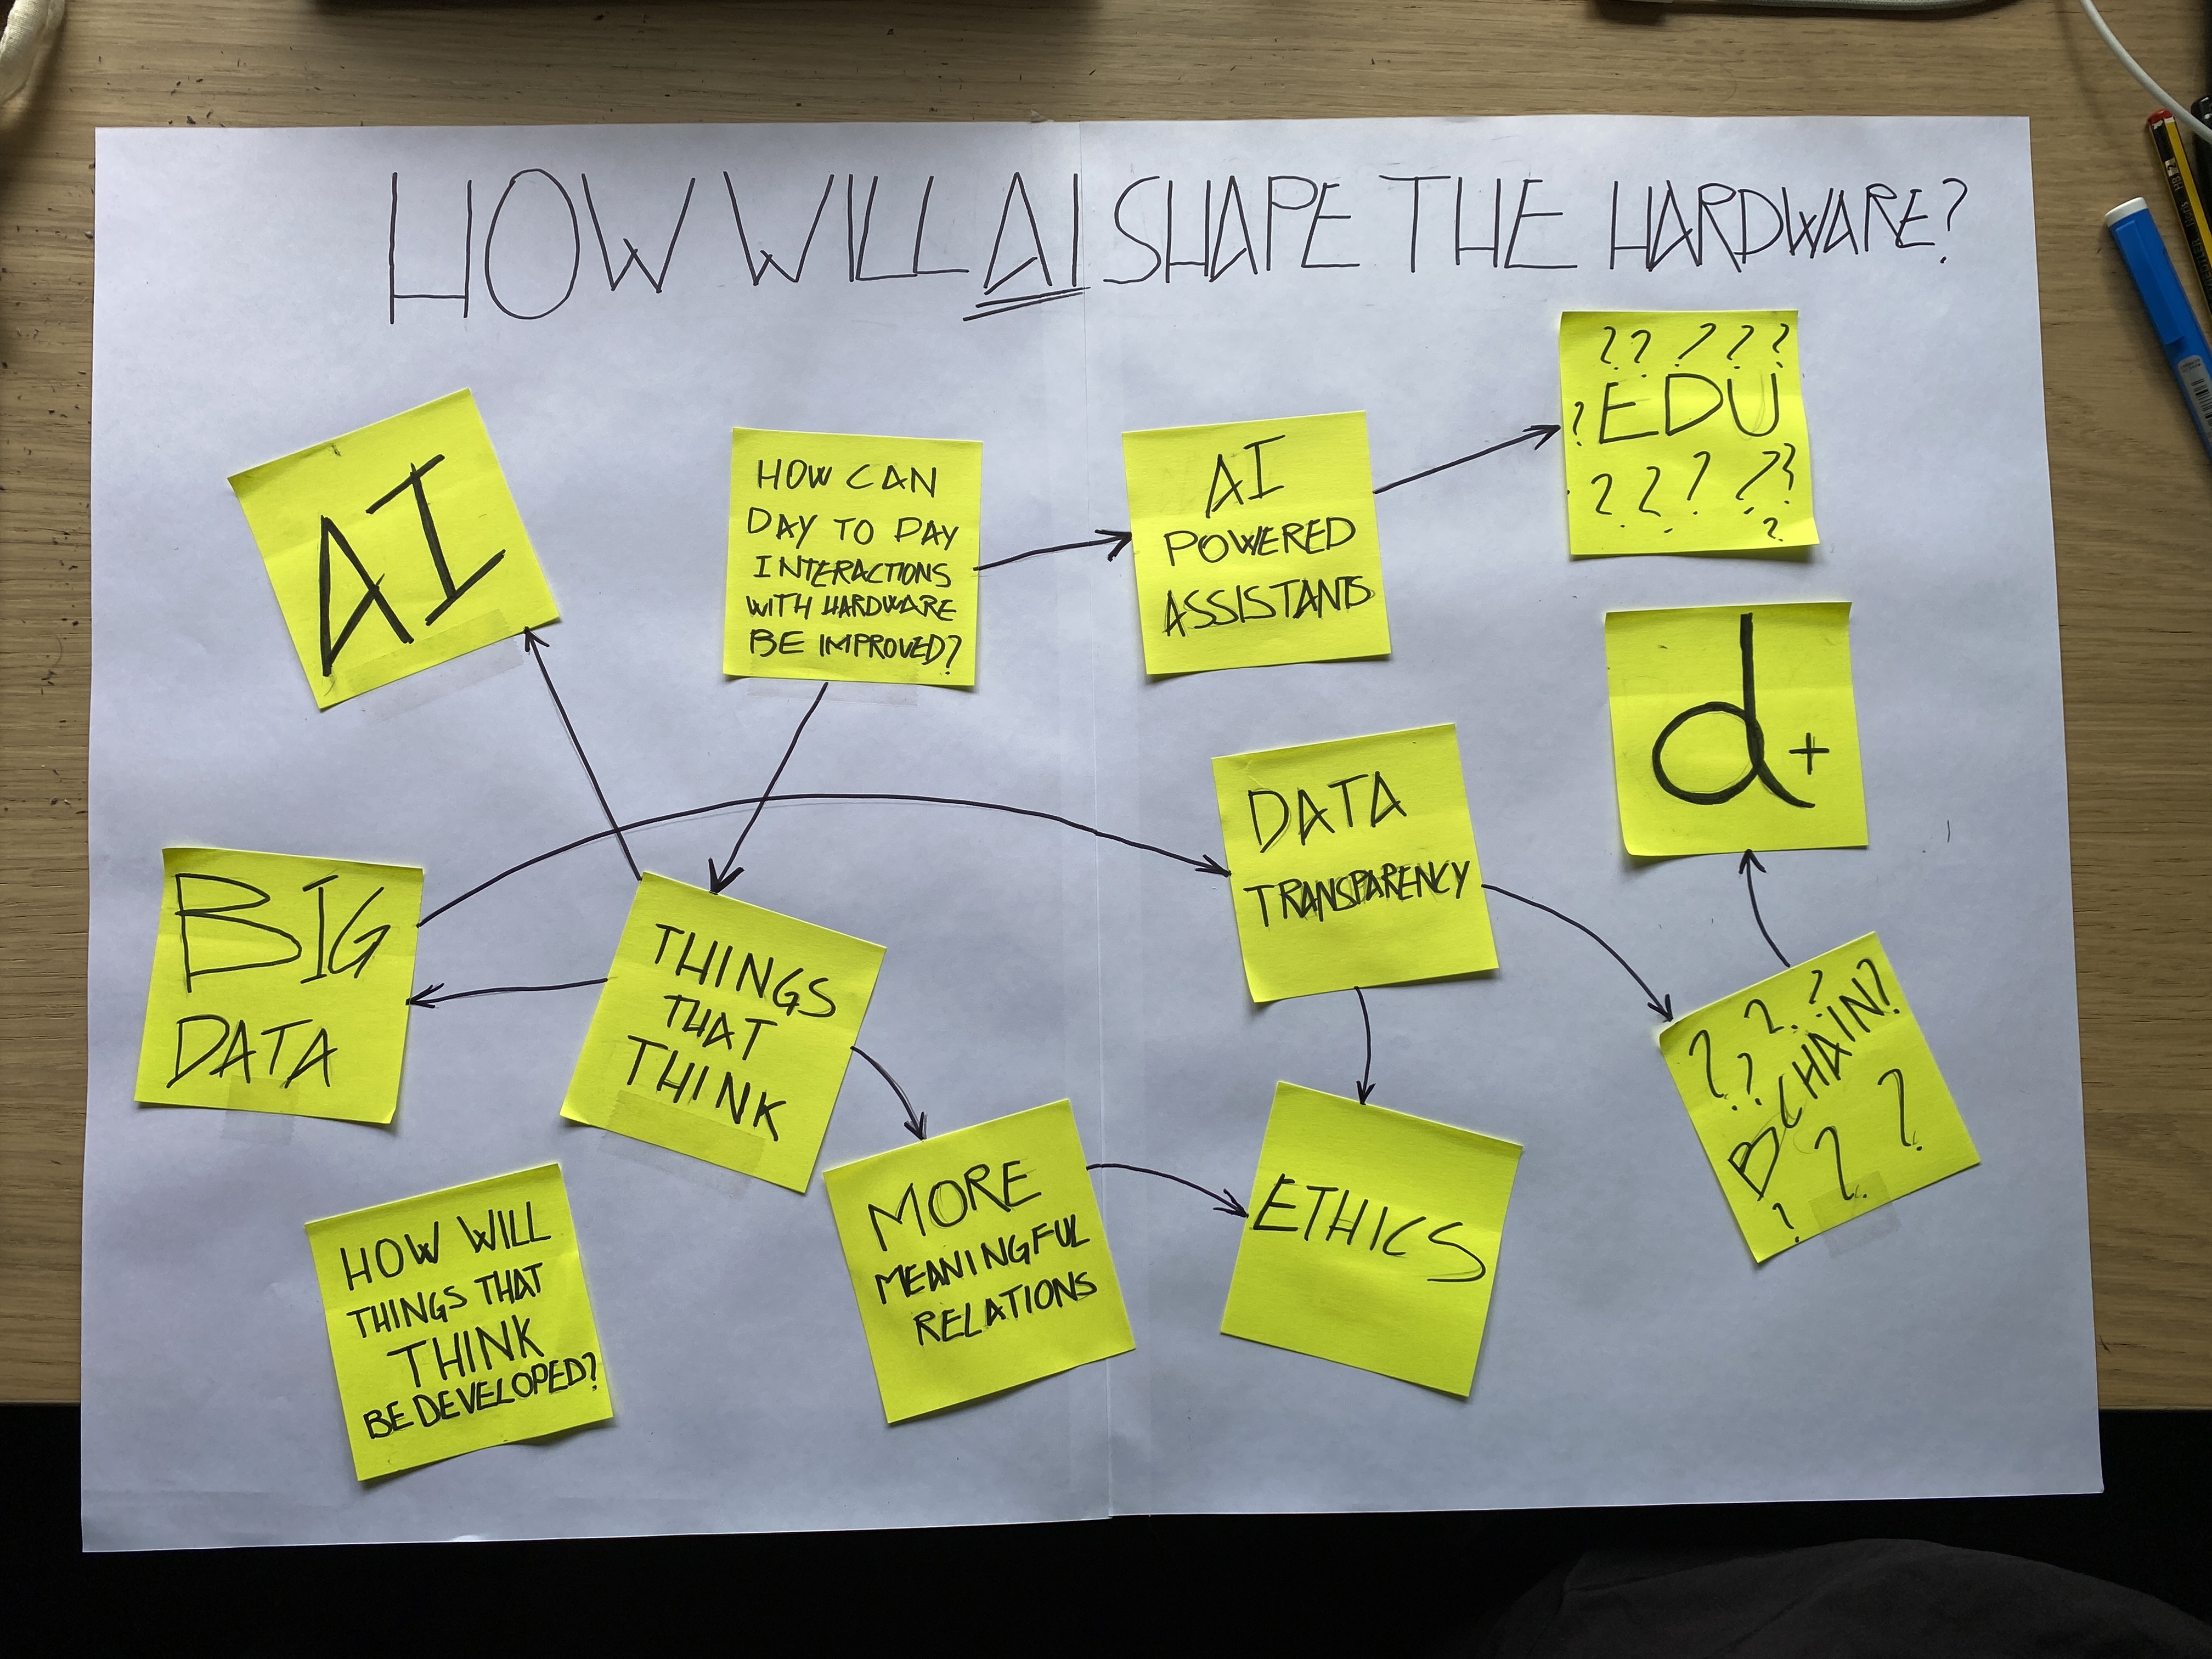 HOW WILL AI SHAPE THE HARDWARE?
AI
HOW CAN
DAY TO DAY
INTERACTIONS
WITH HARDWARE
BE IMPROVED?
AI
POWERED
ASSISTANTS
?? ???
?EDU
??? ??
?
d+
BIG
DATA
THINGS
THAT
THINK
DATA
TRANSPARENCY
?? ? ?
BCHAIN?
? ?
?
HOW WILL
THINGS THAT
THINK
BE DEVELOPED?
MORE
MEANINGFUL
RELATIONS
ETHICS